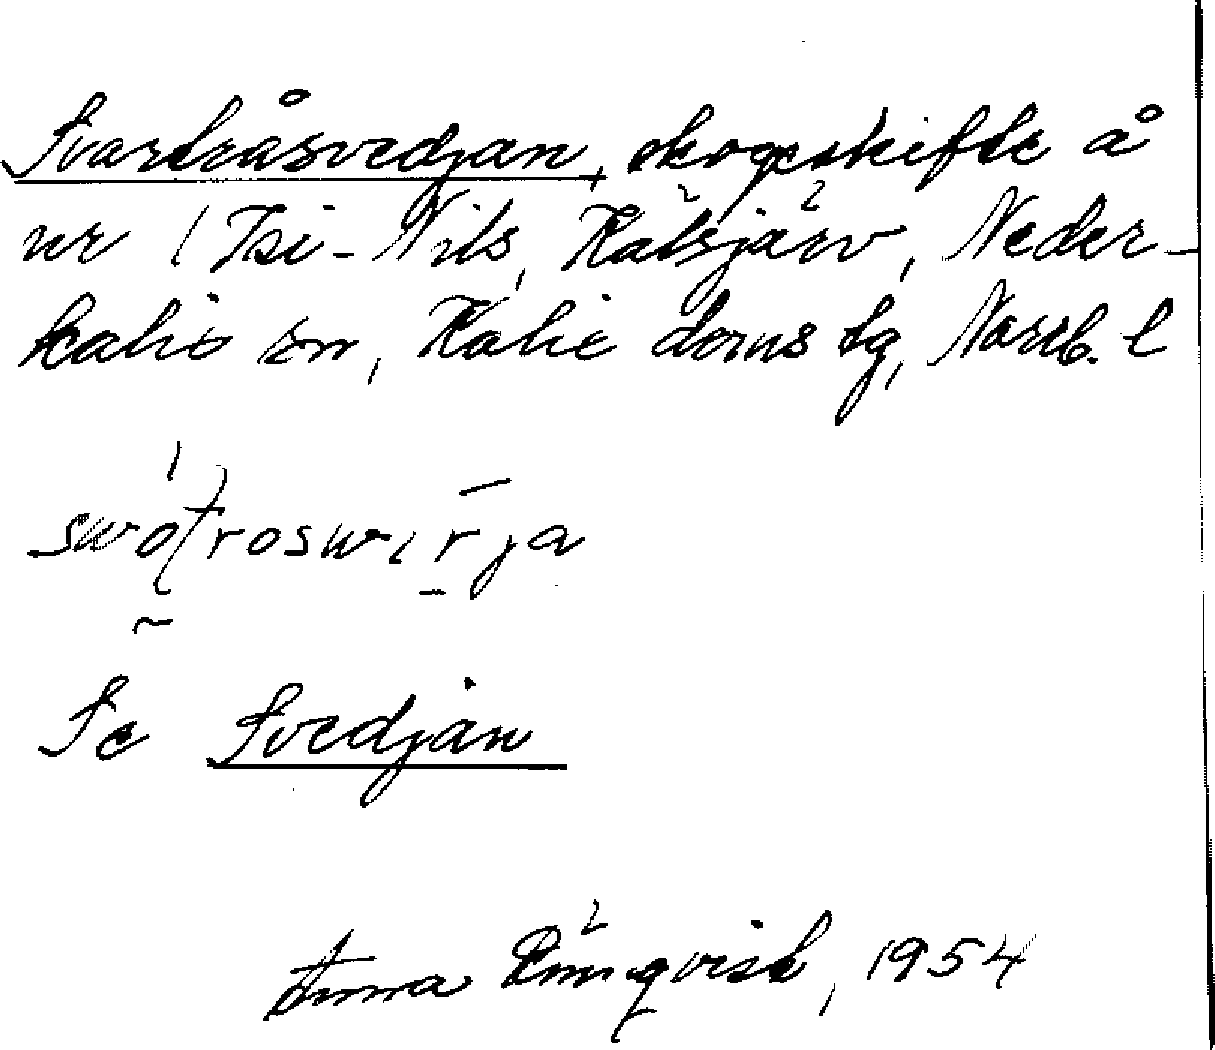 Svartråsvedjan, skogsskifte å
nr 1 Isi-Nils, Rätsjärv, Neder-
kalix sn, Kalix doms tg, Norrb. l
Se Svedjan
Anna Rönnqvist, 1954